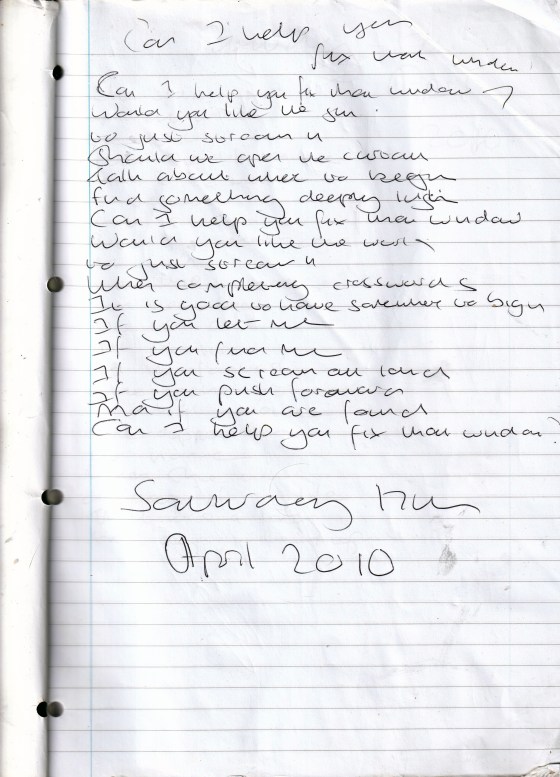 Can I help you
fix that window
Can I help you fix that window?
Would you like the sun
to just stream in
Should we open the curtain
Talk about where to begin
find something deeping
Can I help you fix that window
Would you like the world
to just stream in
When completing crosswords
It is good to have somewhere to begin
If you let me
If you find me
If you scream out loud
If you push forward
And if you are found
Can I help you fix that window?
Saturday 17th
April 2010